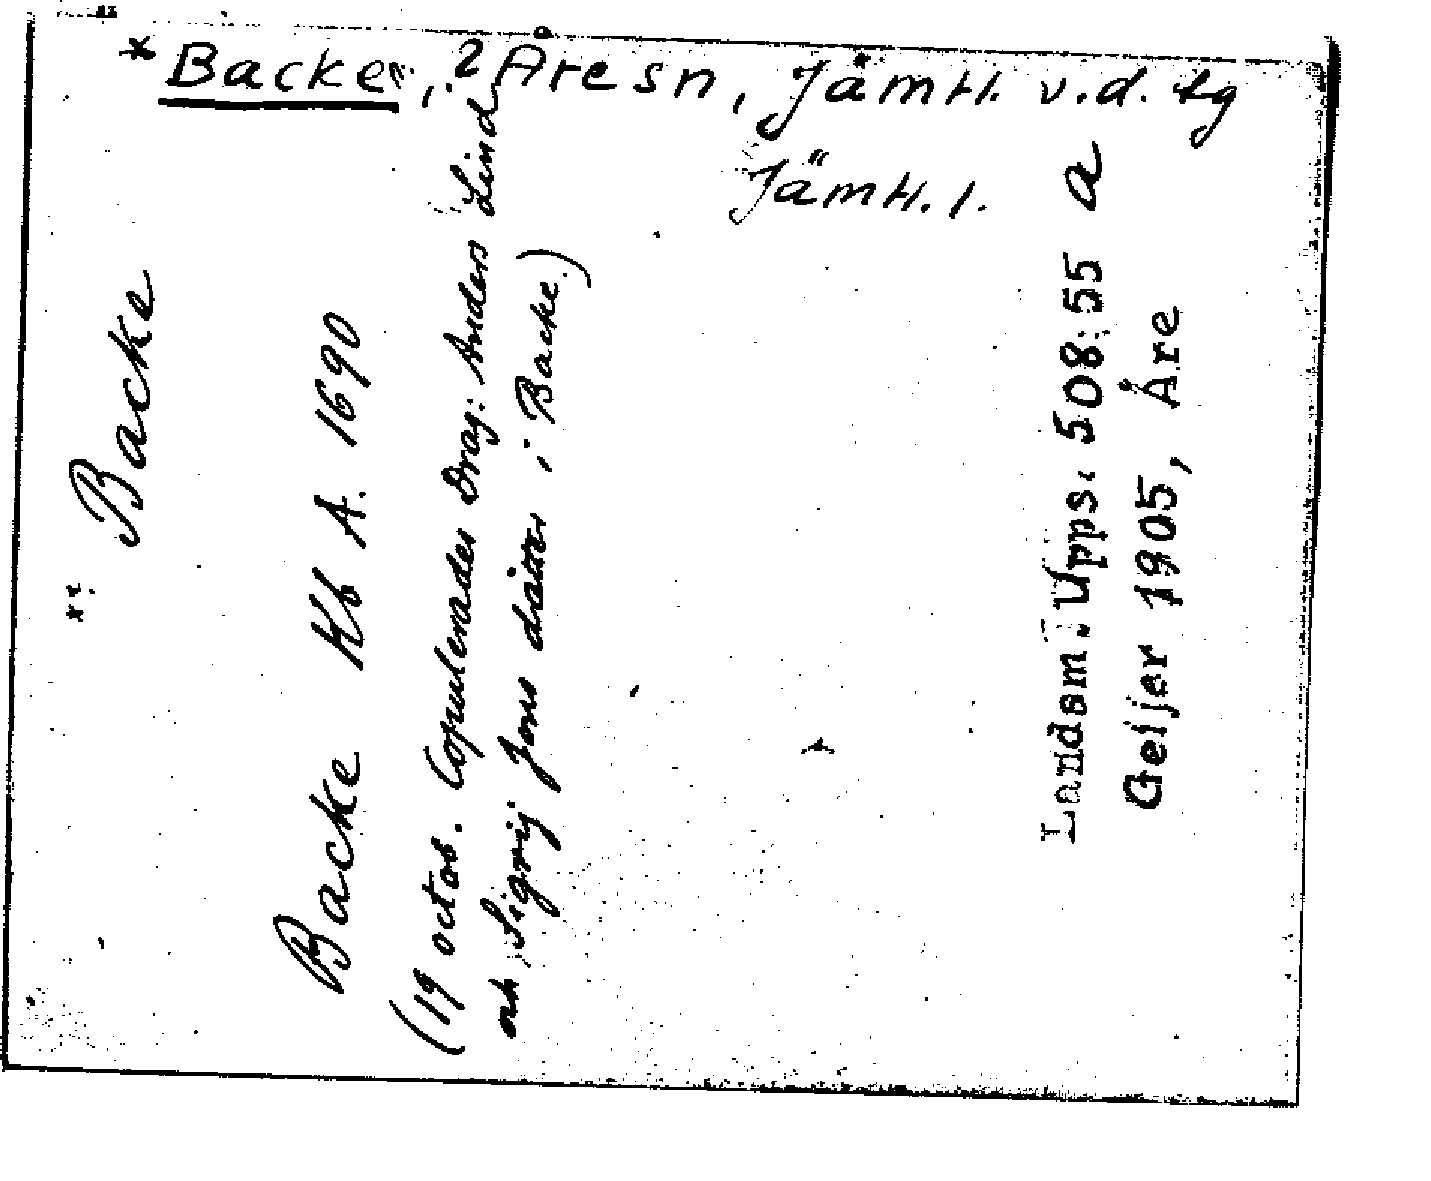 * Backe, i ? Åre sn, Jämtl. v.d. tg
Jämtl. l.
Backe
Backe Kb A. 1690
(19 octob. Copulerades Drag: Anders Lind
och Sigrij Jons datter i Backe.)
Landsm. Upps. 508:55 a
Geijer 1905, Åre